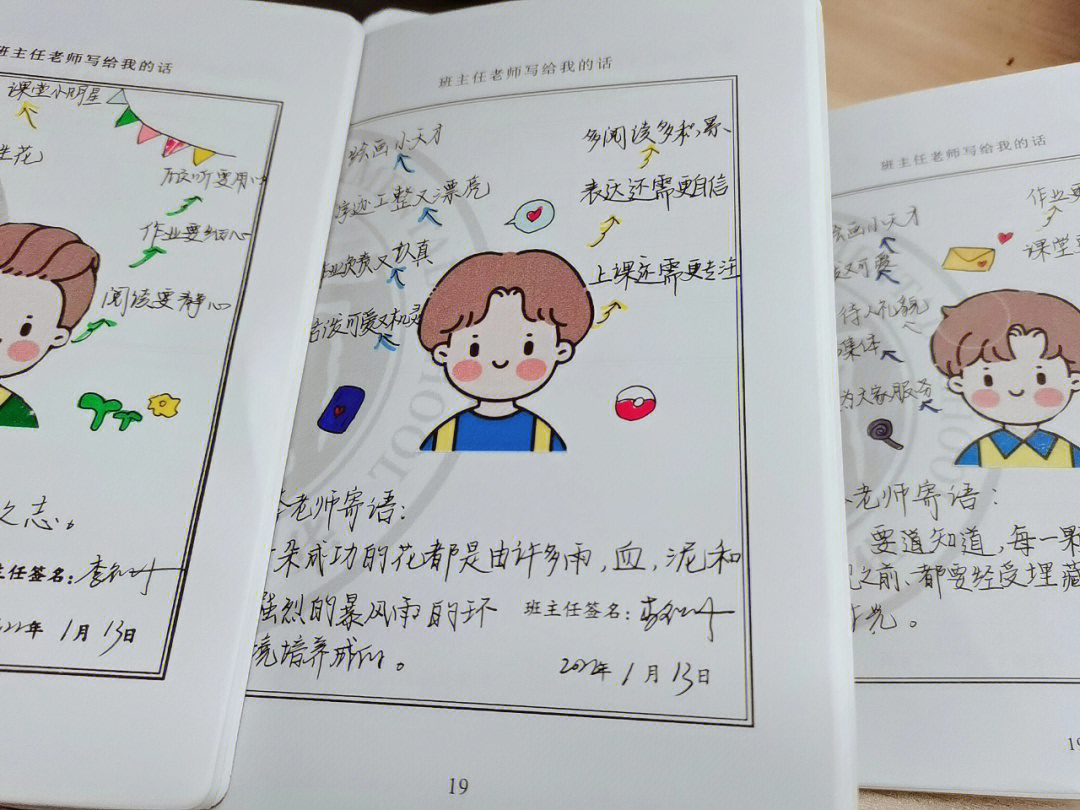 班主任老师写给我的话
课堂小明星
生花
方认听要用心
作业要细心
阅读要静心
之志。
主任签名:
2022年 1月 13日
班主任老师写给我的话
绘画小天才
字迹工整又漂亮
业负责又认真
活泼可爱又机灵
多阅读多积累
表达还需更自信
上课还需更专注
李老师寄语:
一朵成功的花都是由许多雨,血,泥和
强烈的暴风雨的环
境培养成的。
班主任签名:
2022年 1月 13日
19
班主任老师写给我的话
绘画小天才
泼又可爱
待人礼貌
集体
为大家服务
作业要
课堂
老师寄语:
要道知道,每一颗
之前、都要经受埋藏
光。
19